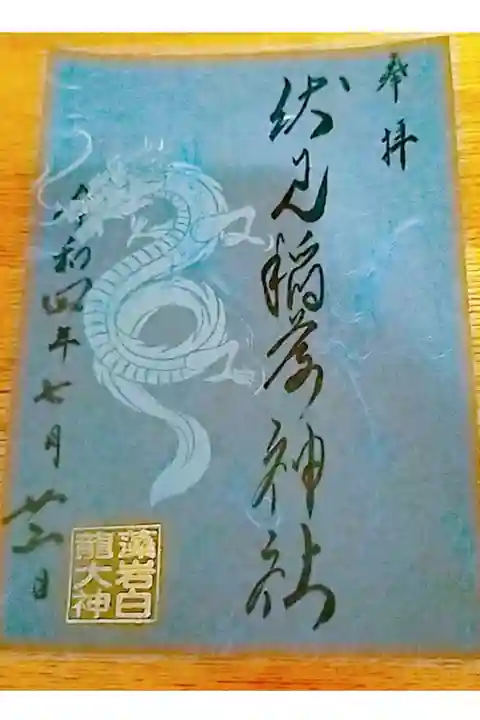 奉拝
伏見稲荷神社
令和四年七月廿三日
藻岩白
龍大神